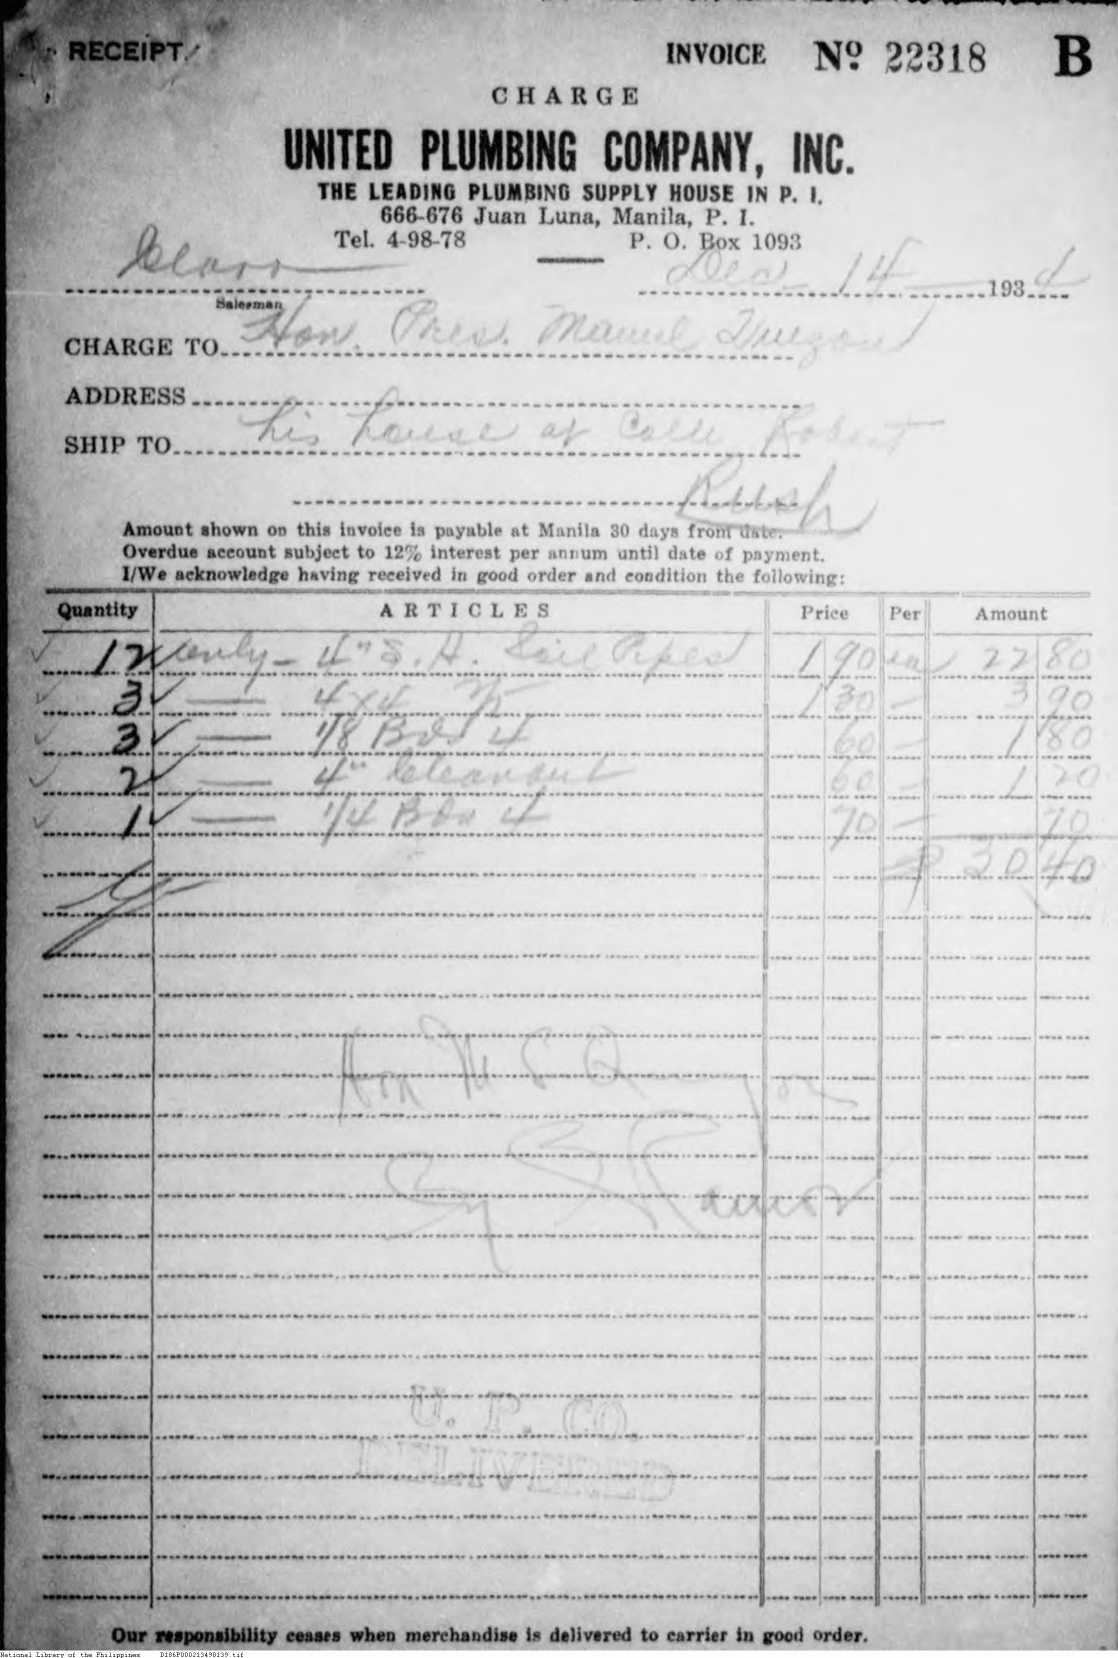 RECEIPT.
INVOICE Nº 22318 B
CHARGE
UNITED PLUMBING COMPANY, INC.
THE LEADING PLUMBING SUPPLY HOUSE IN P. I.
666-676 Juan Luna, Manila, P. I.
Tel. 4-98-78 P. O. Box 1093
14 1934
Salesman
CHARGE TO Hon. Pres. Manuel Quezon
ADDRESS
SHIP TO his house at Calle Robert
Rush
Amount shown on this invoice is payable at Manila 30 days from date.
Overdue account subject to 12% interest per annum until date of payment.
I/We acknowledge having received in good order and condition the following:
Quantity ARTICLES Price Per Amount
12 only - 4" S. H. Soil Pipes 1 90 ea 22 80
3 — 4 x 4 Y 1 30 — 3 90
3 — 1/8 Bds 4 60 — 1 80
2 — 4" Cleanout 60 — 1 20
1 — 1/4 Bds 4 70 — 70
₱ 30 40
Hon M L Q
By B Ramos
U. P. CO.
DELIVERED
Our responsibility ceases when merchandise is delivered to carrier in good order.
National Library of the Philippines D186P000213498139.tif